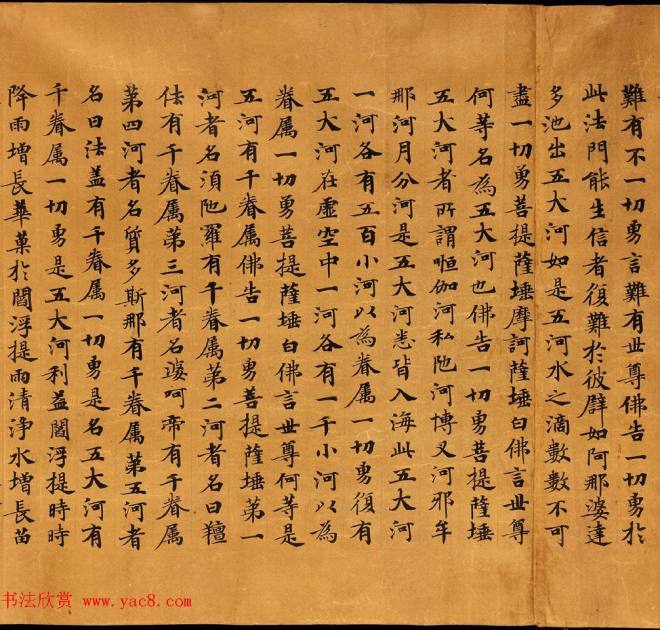 難有不一切勇言難有世尊佛告一切勇於
此法門能生信者復難於彼譬如阿那婆達
多池出五大河如是五河水之滴數數不可
盡一切勇菩提薩埵摩訶薩埵白佛言世尊
何等名為五大河也佛告一切勇菩提薩埵
五大河者所謂恒伽河私陁河博叉河耶牟
那河月分河是五大河悉皆入海此五大河
一河各有五百小河以為眷属一切勇復有
五大河在虛空中一河各有一千小河以為
眷属一切勇菩提薩埵白佛言世尊何等是
五河有千眷属佛告一切勇菩提薩埵第一
河者名湏陁羅有千眷属第二河者名曰羶
佉有千眷属第三河者名婆呵帝有千眷属
第四河者名質多斯那有千眷属第五河者
名曰法盖有千眷属一切勇是名五大河有
千眷属一切勇是五大河利益閻浮提時時
降雨增長華菓於閻浮提雨清淨水增長苗
书法欣赏 www.yac8.com